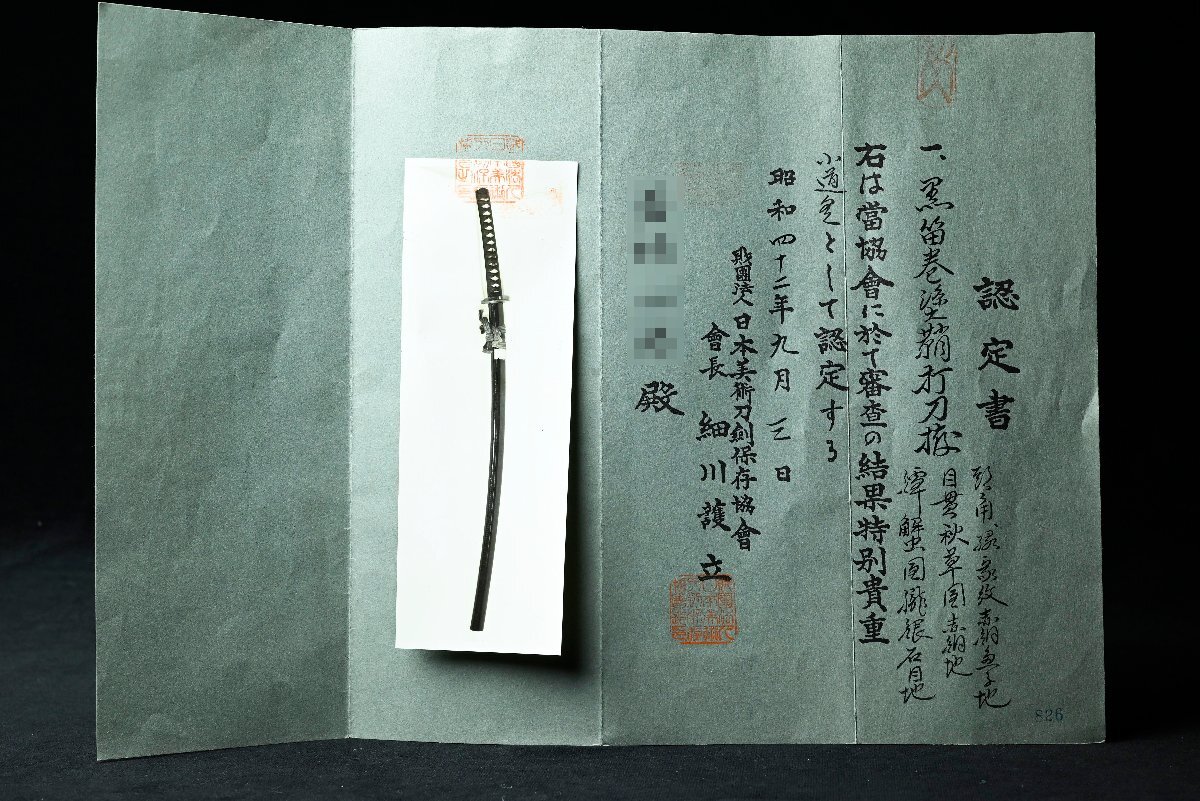 認定書
一、黒笛巻塗鞘打刀拵
頭角縁家紋赤銅魚子地
目貫秋草図赤銅地
鐔蟹図朧銀石目地
右は當協會に於て審査の結果特別貴重
小道具として認定する
昭和四十二年九月三日
財團法人日本美術刀劍保存協會
會長 細川護立
殿
826